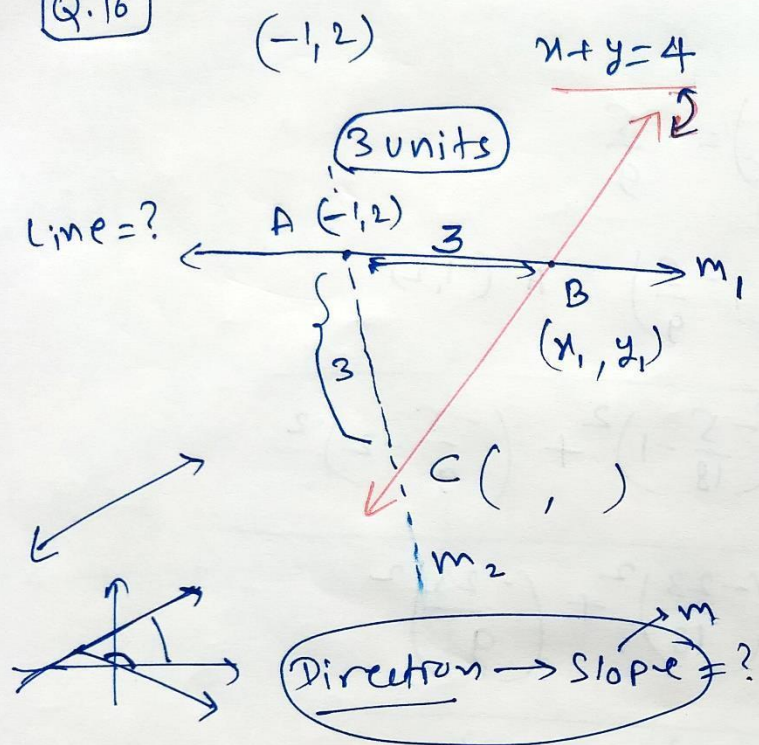 Q.16
(-1,2)
x+y=4
3 units
Line=?
A (-1,2)
3
m₁
B
(x₁, y₁)
3
C ( , )
m₂
m
Direction → Slope = ?